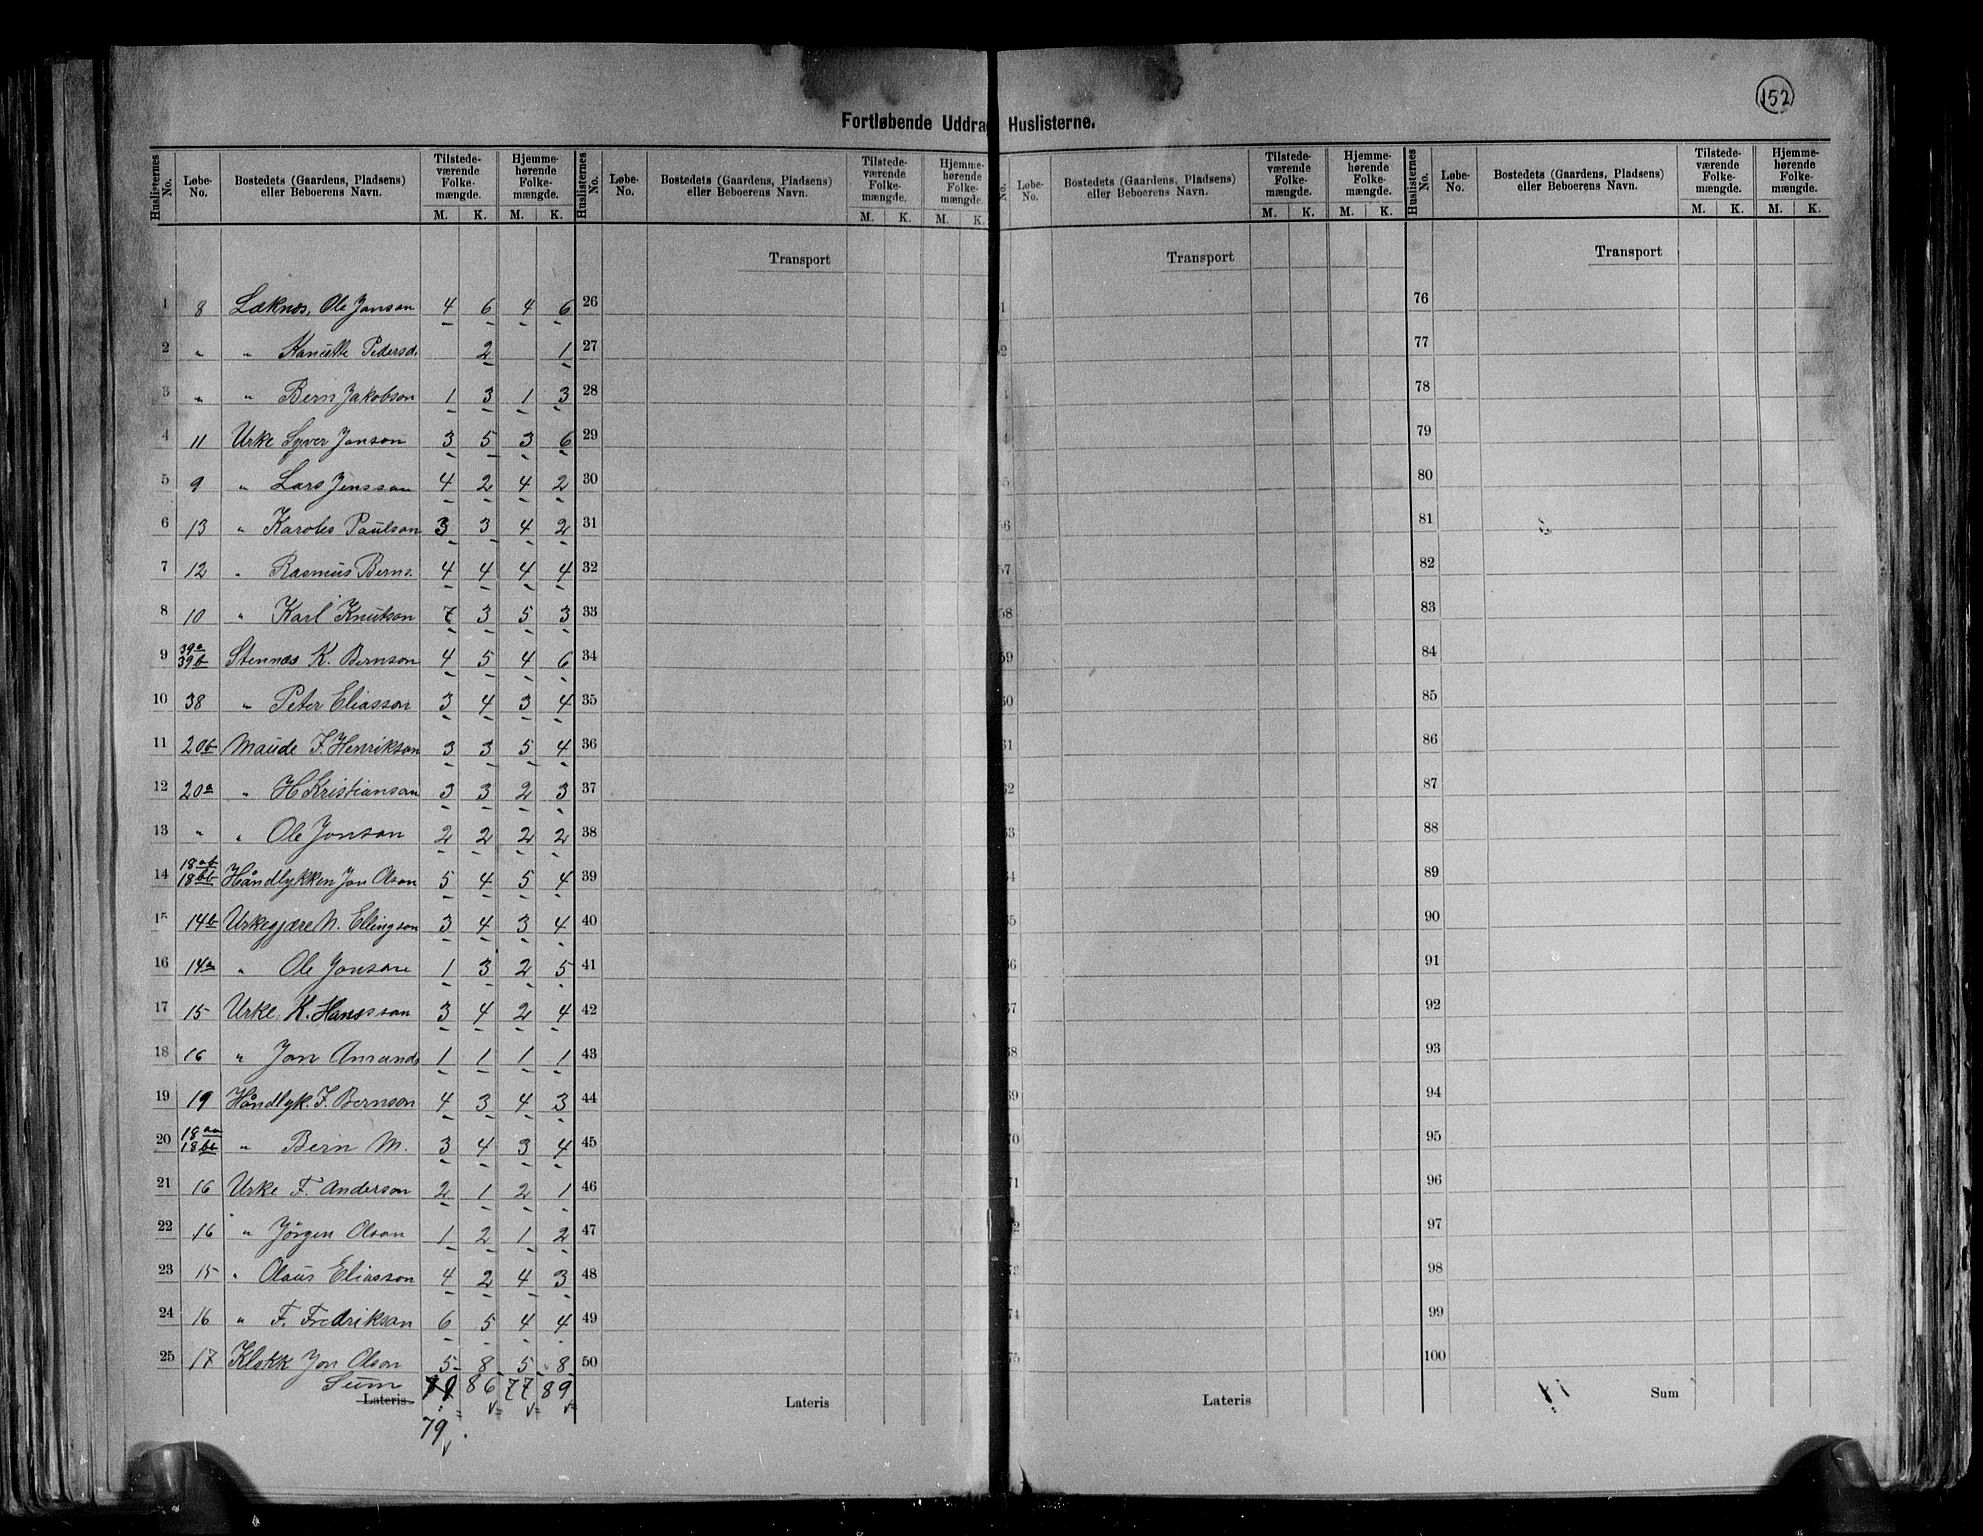 152
Fortløbende Uddra Huslisterne.
Huslisternes No. Løbe-No. Bostedets (Gaardens, Pladsens) eller Beboerens Navn. Tilstede-værende Folke-mængde. M. K. Hjemme-hørende Folke-mængde. M. K.
Huslisternes No. Løbe-No. Bostedets (Gaardens, Pladsens) eller Beboerens Navn. Tilstede-værende Folke-mængde. M. K. Hjemme-hørende Folke-mængde. M. K.
No. Løbe-No. Bostedets (Gaardens, Pladsens) eller Beboerens Navn. Tilstede-værende Folke-mængde. M. K. Hjemme-hørende Folke-mængde. M. K.
Huslisternes No. Løbe-No. Bostedets (Gaardens, Pladsens) eller Beboerens Navn. Tilstede-værende Folke-mængde. M. K. Hjemme-hørende Folke-mængde. M. K.
Transport Transport Transport
1 8 Læknes, Ole Jonson 4 6 4 6 26 1 76
2 " " Kanutte Pedersd. 2 1 27 2 77
3 " " Bern Jakobson 1 3 1 3 28 78
4 11 Urke Syver Jonson 3 5 3 6 29 79
5 9 " Lars Jensson 4 2 4 2 30 5 80
6 13 " Karoles Paulson 3 3 4 2 31 56 81
7 12 " Rasmus Berns. 4 4 4 4 32 57 82
8 10 " Karl Knutson 7 3 5 3 33 58 83
9 39a 39b Stennes K. Bernson 4 5 4 6 34 59 84
10 38 " Peter Eliasson 3 4 3 4 35 60 85
11 20b Maude F. Henrikson 3 3 5 4 36 61 86
12 20a " H Kristianson 3 3 2 3 37 62 87
13 " " Ole Jonson 2 2 2 2 38 63 88
14 18ab 18bb Håndlykken Jon Olson 5 4 5 4 39 64 89
15 14b Urkegjære N. Ellingson 3 4 3 4 40 65 90
16 14a " Ole Jonson 1 3 2 5 41 66 91
17 15 Urke K. Hansson 3 4 2 4 42 67 92
18 16 " Jon Amunds 1 1 1 1 43 68 93
19 19 Håndlyk. F. Bernson 4 3 4 3 44 69 94
20 18aa 18bc " Bern M. 3 4 3 4 45 70 95
21 16 Urke F. Anderson 2 1 2 1 46 71 96
22 16 " Jørgen Olson 1 2 1 2 47 72 97
23 15 " Olaus Eliasson 4 2 4 3 48 73 98
24 16 " F. Fredrikson 6 5 4 4 49 74 99
25 17 Klokk Jon Olson 5 8 5 8 50 75 100
Sum 86 77 89
Lateris Lateris Lateris Sum
79